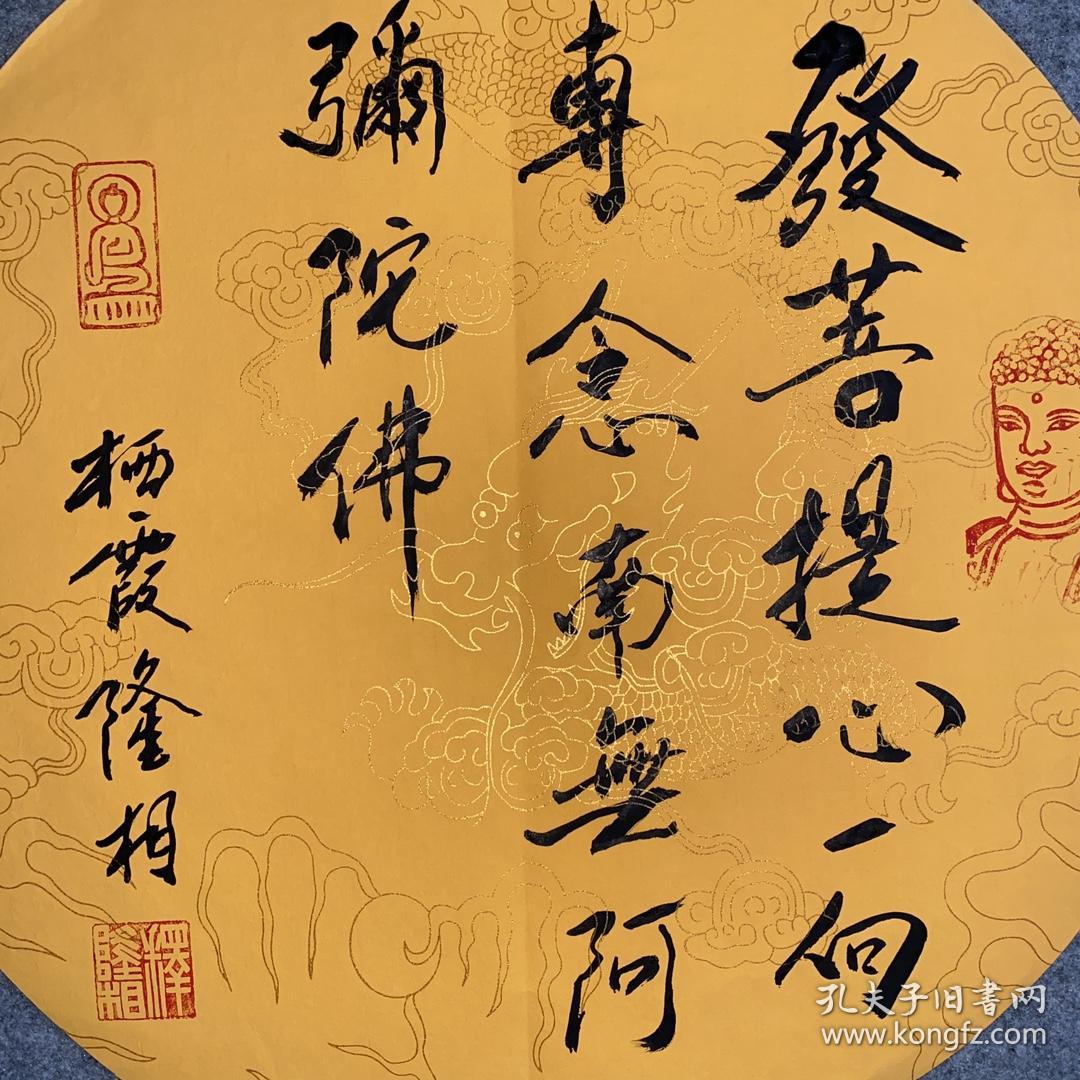 發菩提心一向
專念南無阿
彌陀佛
栖霞隆相
釋隆相
孔夫子旧书网
www.kongfz.com